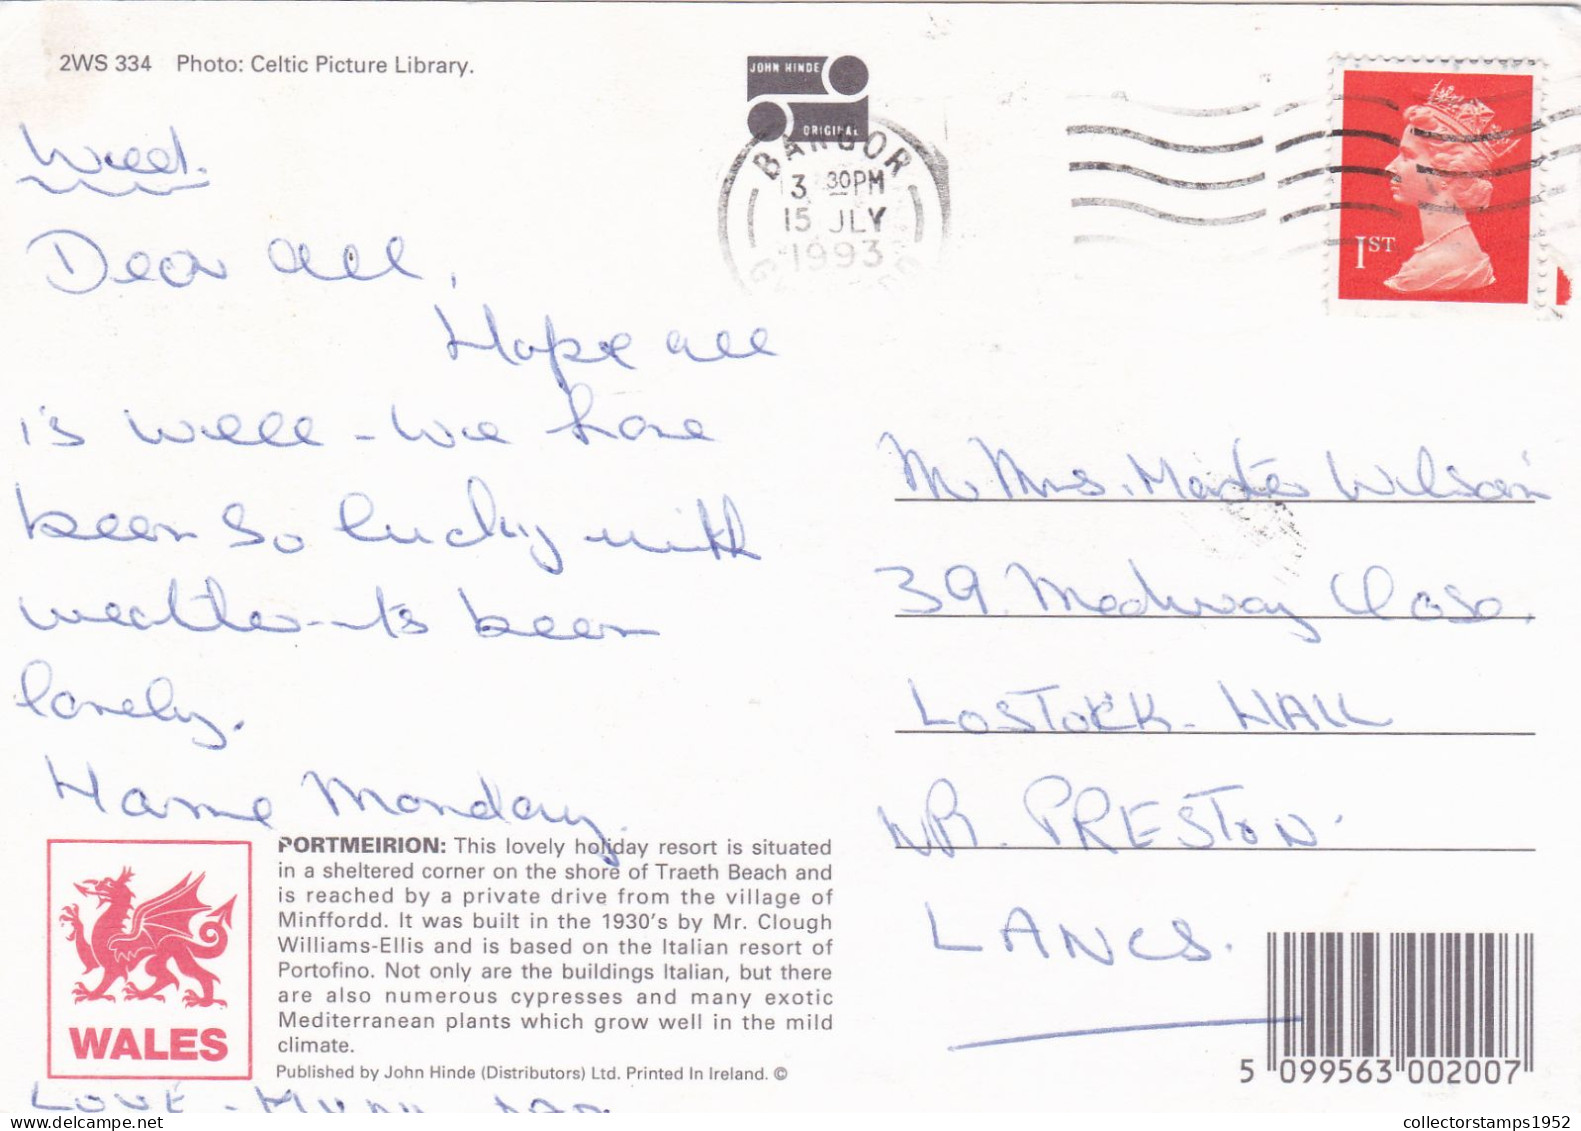 2WS 334 Photo: Celtic Picture Library.
JOHN HINDE
ORIGINAL
BANGOR
3 30PM
15 JLY
1993
1ST
Wed.
Dear all,
Hope all
is well - we have
been so lucky with
weather - it's been
lovely.
Home Monday.
Mr. Mrs. Master Wilson
39. Medway Close.
LOSTOCK - HALL
NR. PRESTON.
LANCS.
PORTMEIRION: This lovely holiday resort is situated
in a sheltered corner on the shore of Traeth Beach and
is reached by a private drive from the village of
Minffordd. It was built in the 1930's by Mr. Clough
Williams-Ellis and is based on the Italian resort of
Portofino. Not only are the buildings Italian, but there
are also numerous cypresses and many exotic
Mediterranean plants which grow well in the mild
climate.
Published by John Hinde (Distributors) Ltd. Printed In Ireland. ©
WALES
LOVE -
5 099563 002007
collectorstamps1952